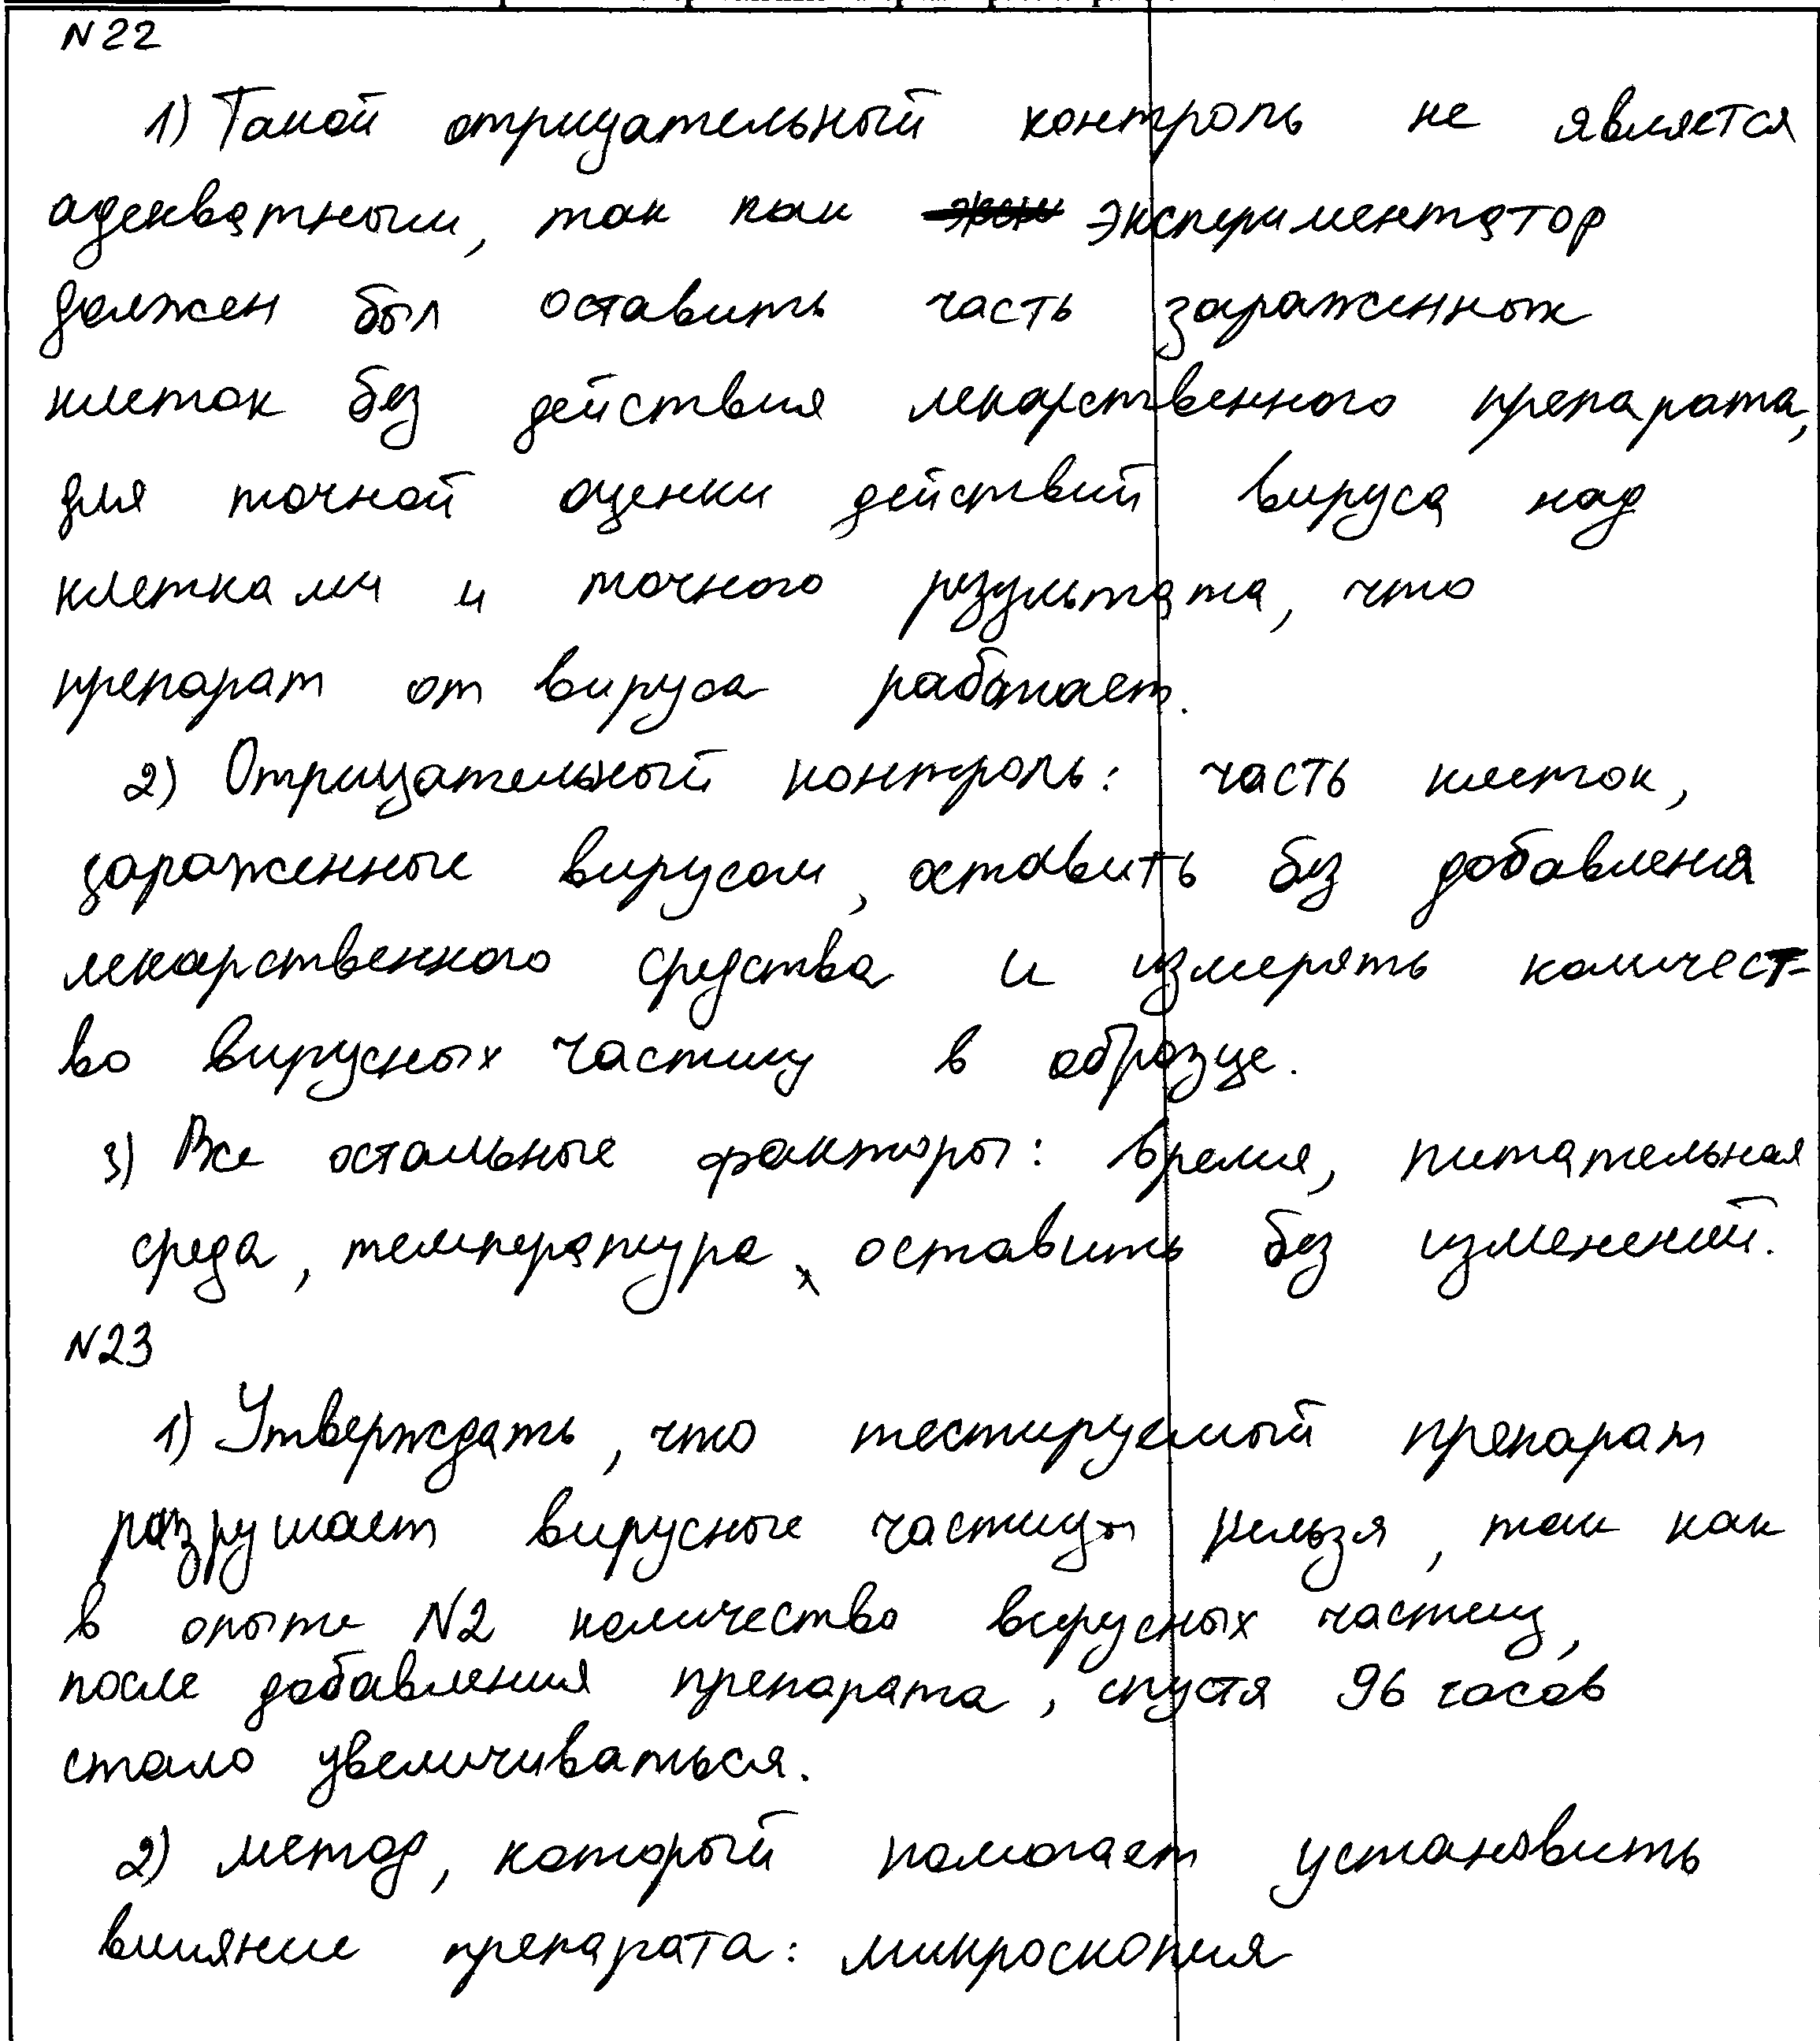 N22
1) Такой отрицательный контроль не является
адекватным, так как экспериментатор
должен был оставить часть зараженных
клеток без действия лекарственного препарата,
для точной оценки действий вируса над
клетками и точного результата, что
препарат от вируса работает.
2) Отрицательный контроль: часть клеток,
зараженные вирусом, оставить без добавления
лекарственного средства и измерять количест-
во вирусных частиц в образце.
3) Все остальные факторы: время, питательная
среда, температура, оставить без изменений.
N23
1) Утверждать, что тестируемый препарат
разрушает вирусные частицы нельзя, так как
в опыте N2 количество вирусных частиц,
после добавления препарата, спустя 96 часов
стало увеличиваться.
2) метод, который помогает установить
влияние препарата: микроскопия